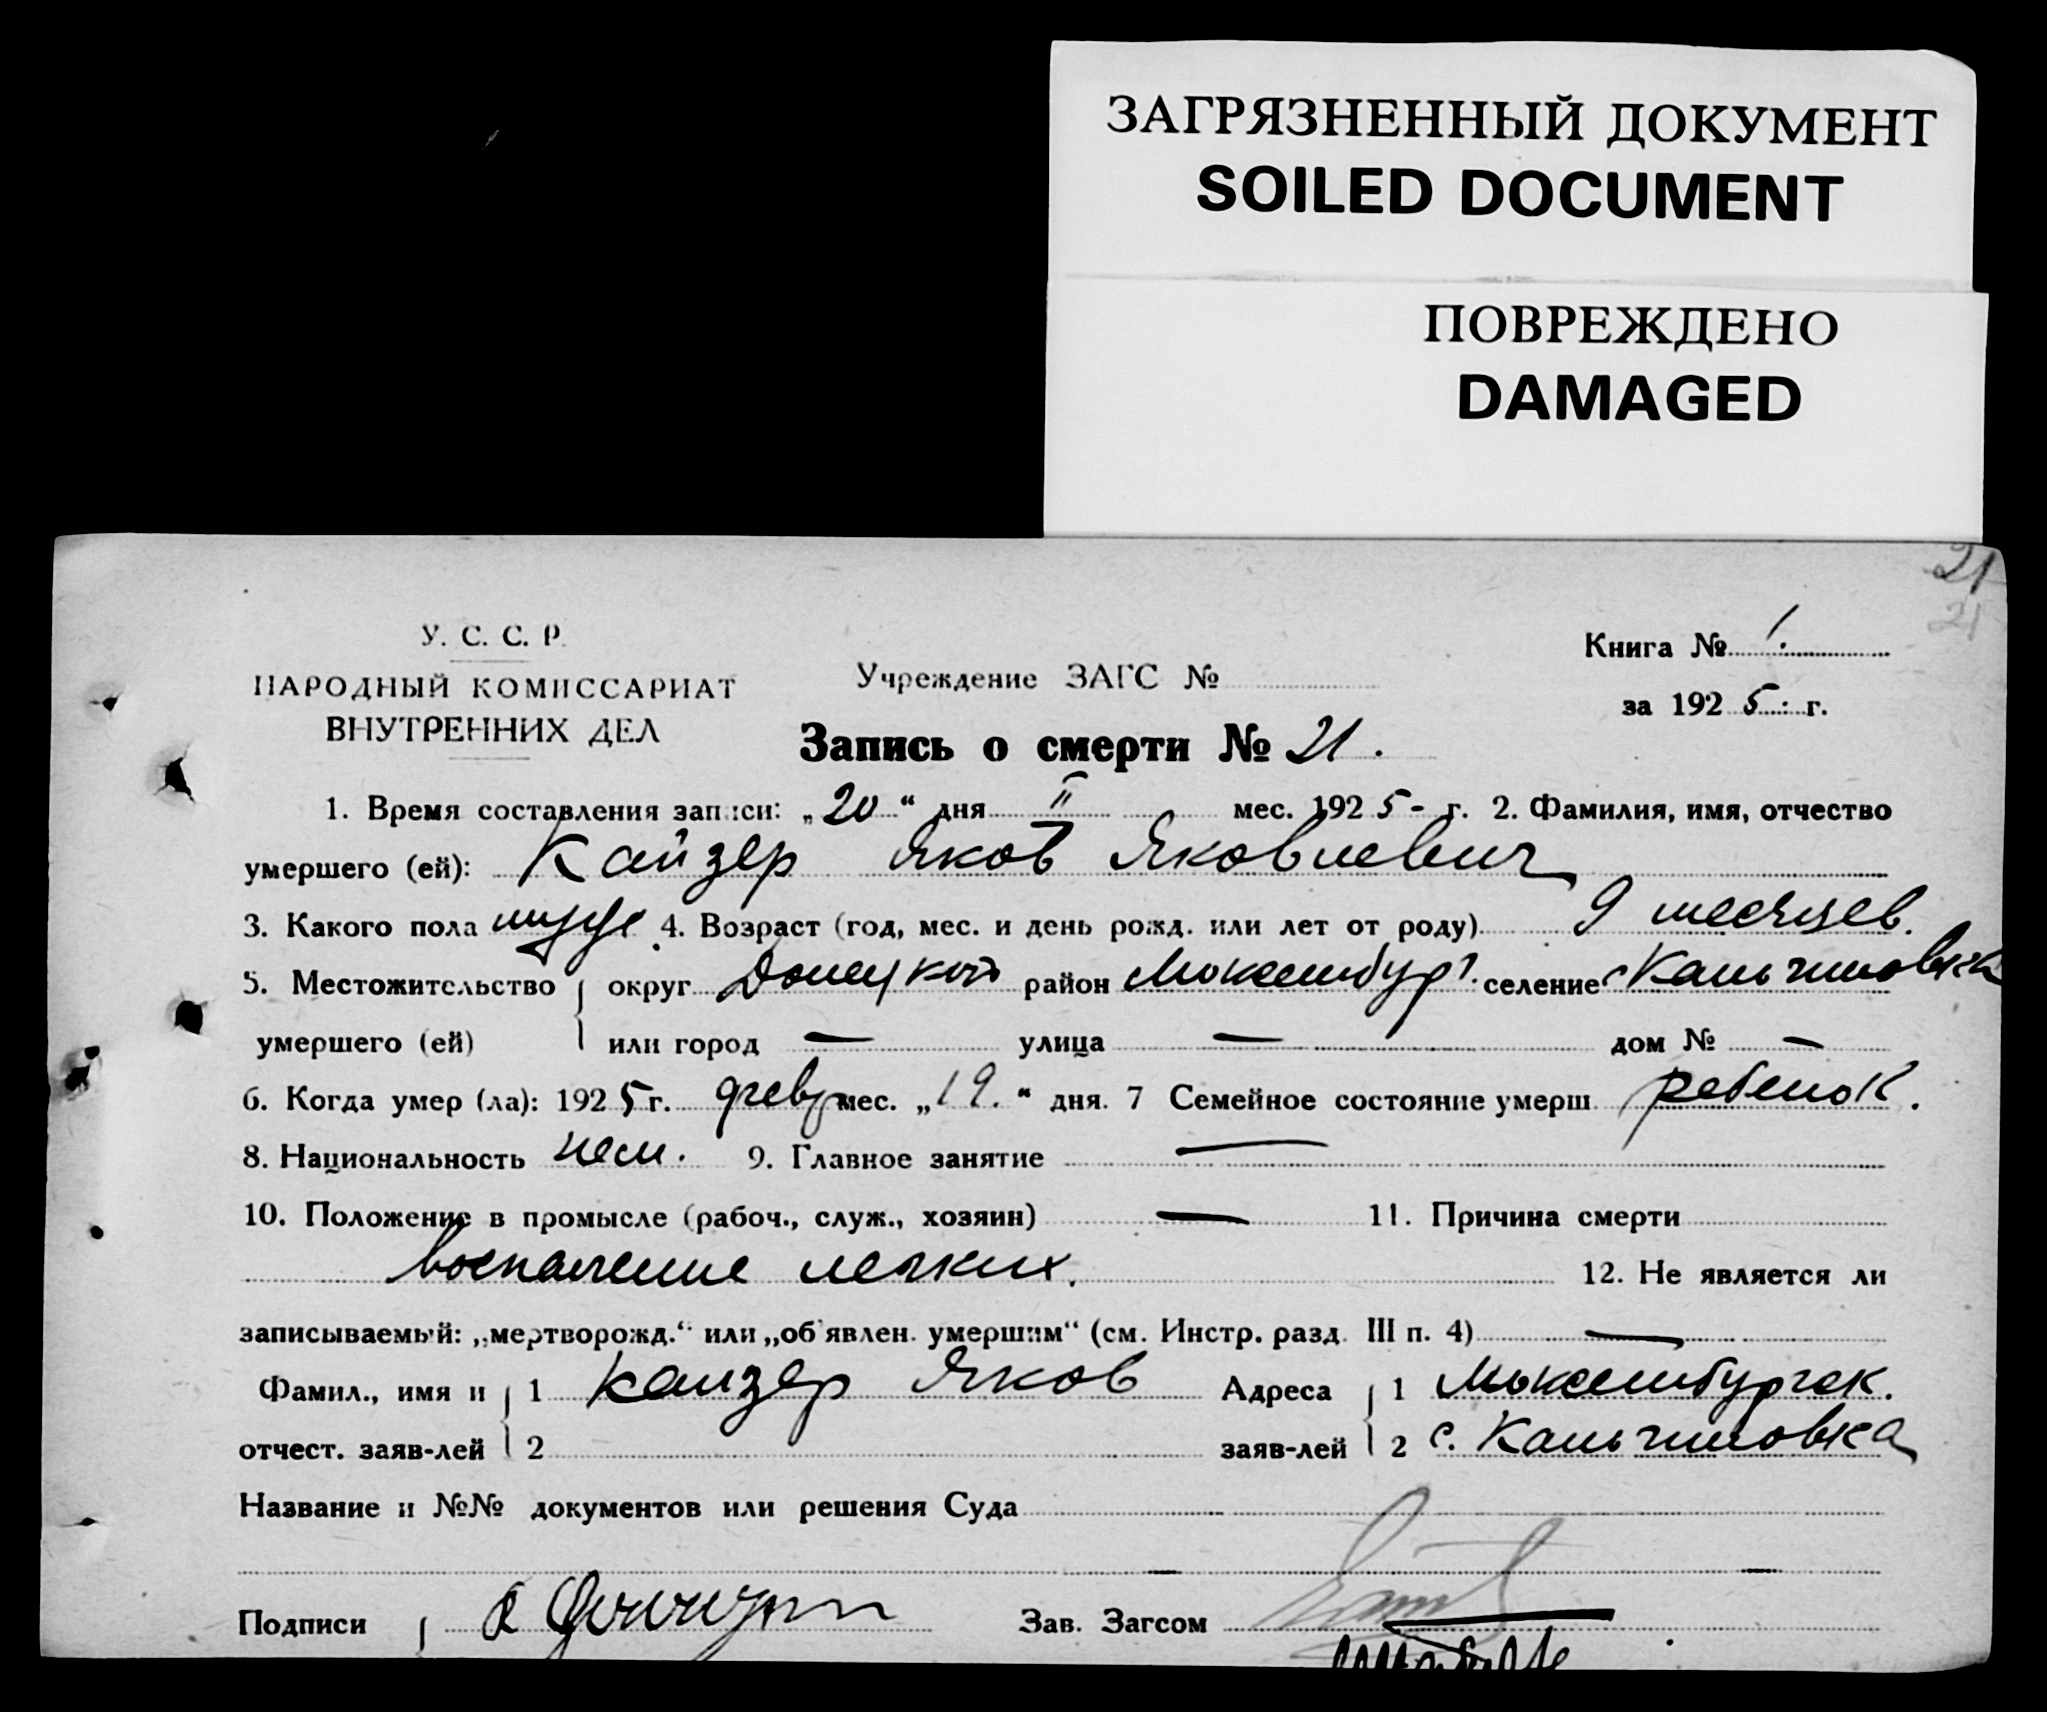 ЗАГРЯЗНЕННЫЙ ДОКУМЕНТ
SOILED DOCUMENT
ПОВРЕЖДЕНО
DAMAGED
21
21
У. С. С. Р.
НАРОДНЫЙ КОМИССАРИАТ
ВНУТРЕННИХ ДЕЛ
Учреждение ЗАГС №
Книга № 1.
за 1925 г.
Запись о смерти № 21.
1. Время составления записи: „20“ дня II мес. 1925 г. 2. Фамилия, имя, отчество
умершего (ей): Кайзер Яков Яковлевич
3. Какого пола муж. 4. Возраст (год, мес. и день рожд. или лет от роду) 9 месяцев.
5. Местожительство округ Донецкой район селение
умершего (ей) или город — улица — дом № —
6. Когда умер (ла): 1925 г. февр мес. „19.“ дня. 7 Семейное состояние умерш. ребенок.
8. Национальность нем. 9. Главное занятие —
10. Положение в промысле (рабоч., служ., хозяин) — 11. Причина смерти
воспаление легких. 12. Не является ли
записываемый: „мертворожд.“ или „об'явлен. умершим“ (см. Инстр. разд. III п. 4) —
Фамил., имя и 1 Кайзер Яков Адреса 1
отчест. заяв-лей 2 заяв-лей 2 с.
Название и №№ документов или решения Суда
Подписи Зав. Загсом